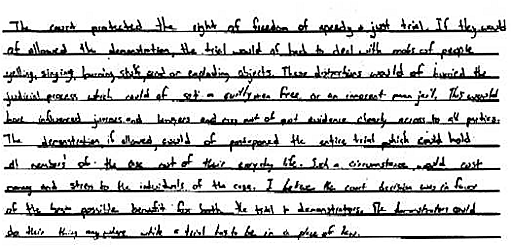 The court protected the right of freedom of speedy + just trial. If they would
of allowed the demonstration, the trial would of had to deal with mobs of people
yelling, singing, burning stuff, and or exploding objects. These distractions would of hurried the
judicial process which could of set a guilty man free, or an innocent man jail. This would
have influenced jurors and lawyers and not of got evidence clearly across to all parties.
The demonstration if allowed could of postponed the entire trial which could hold
all members of the case out of their everyday life. Such a circumstance would cost
money and stress to the individuals of the case. I believe the court decision was in favor
of the best possible benefit for both the trial + demonstrators. The demonstrators could
do their thing anywhere while a trial has to be in a place of law.